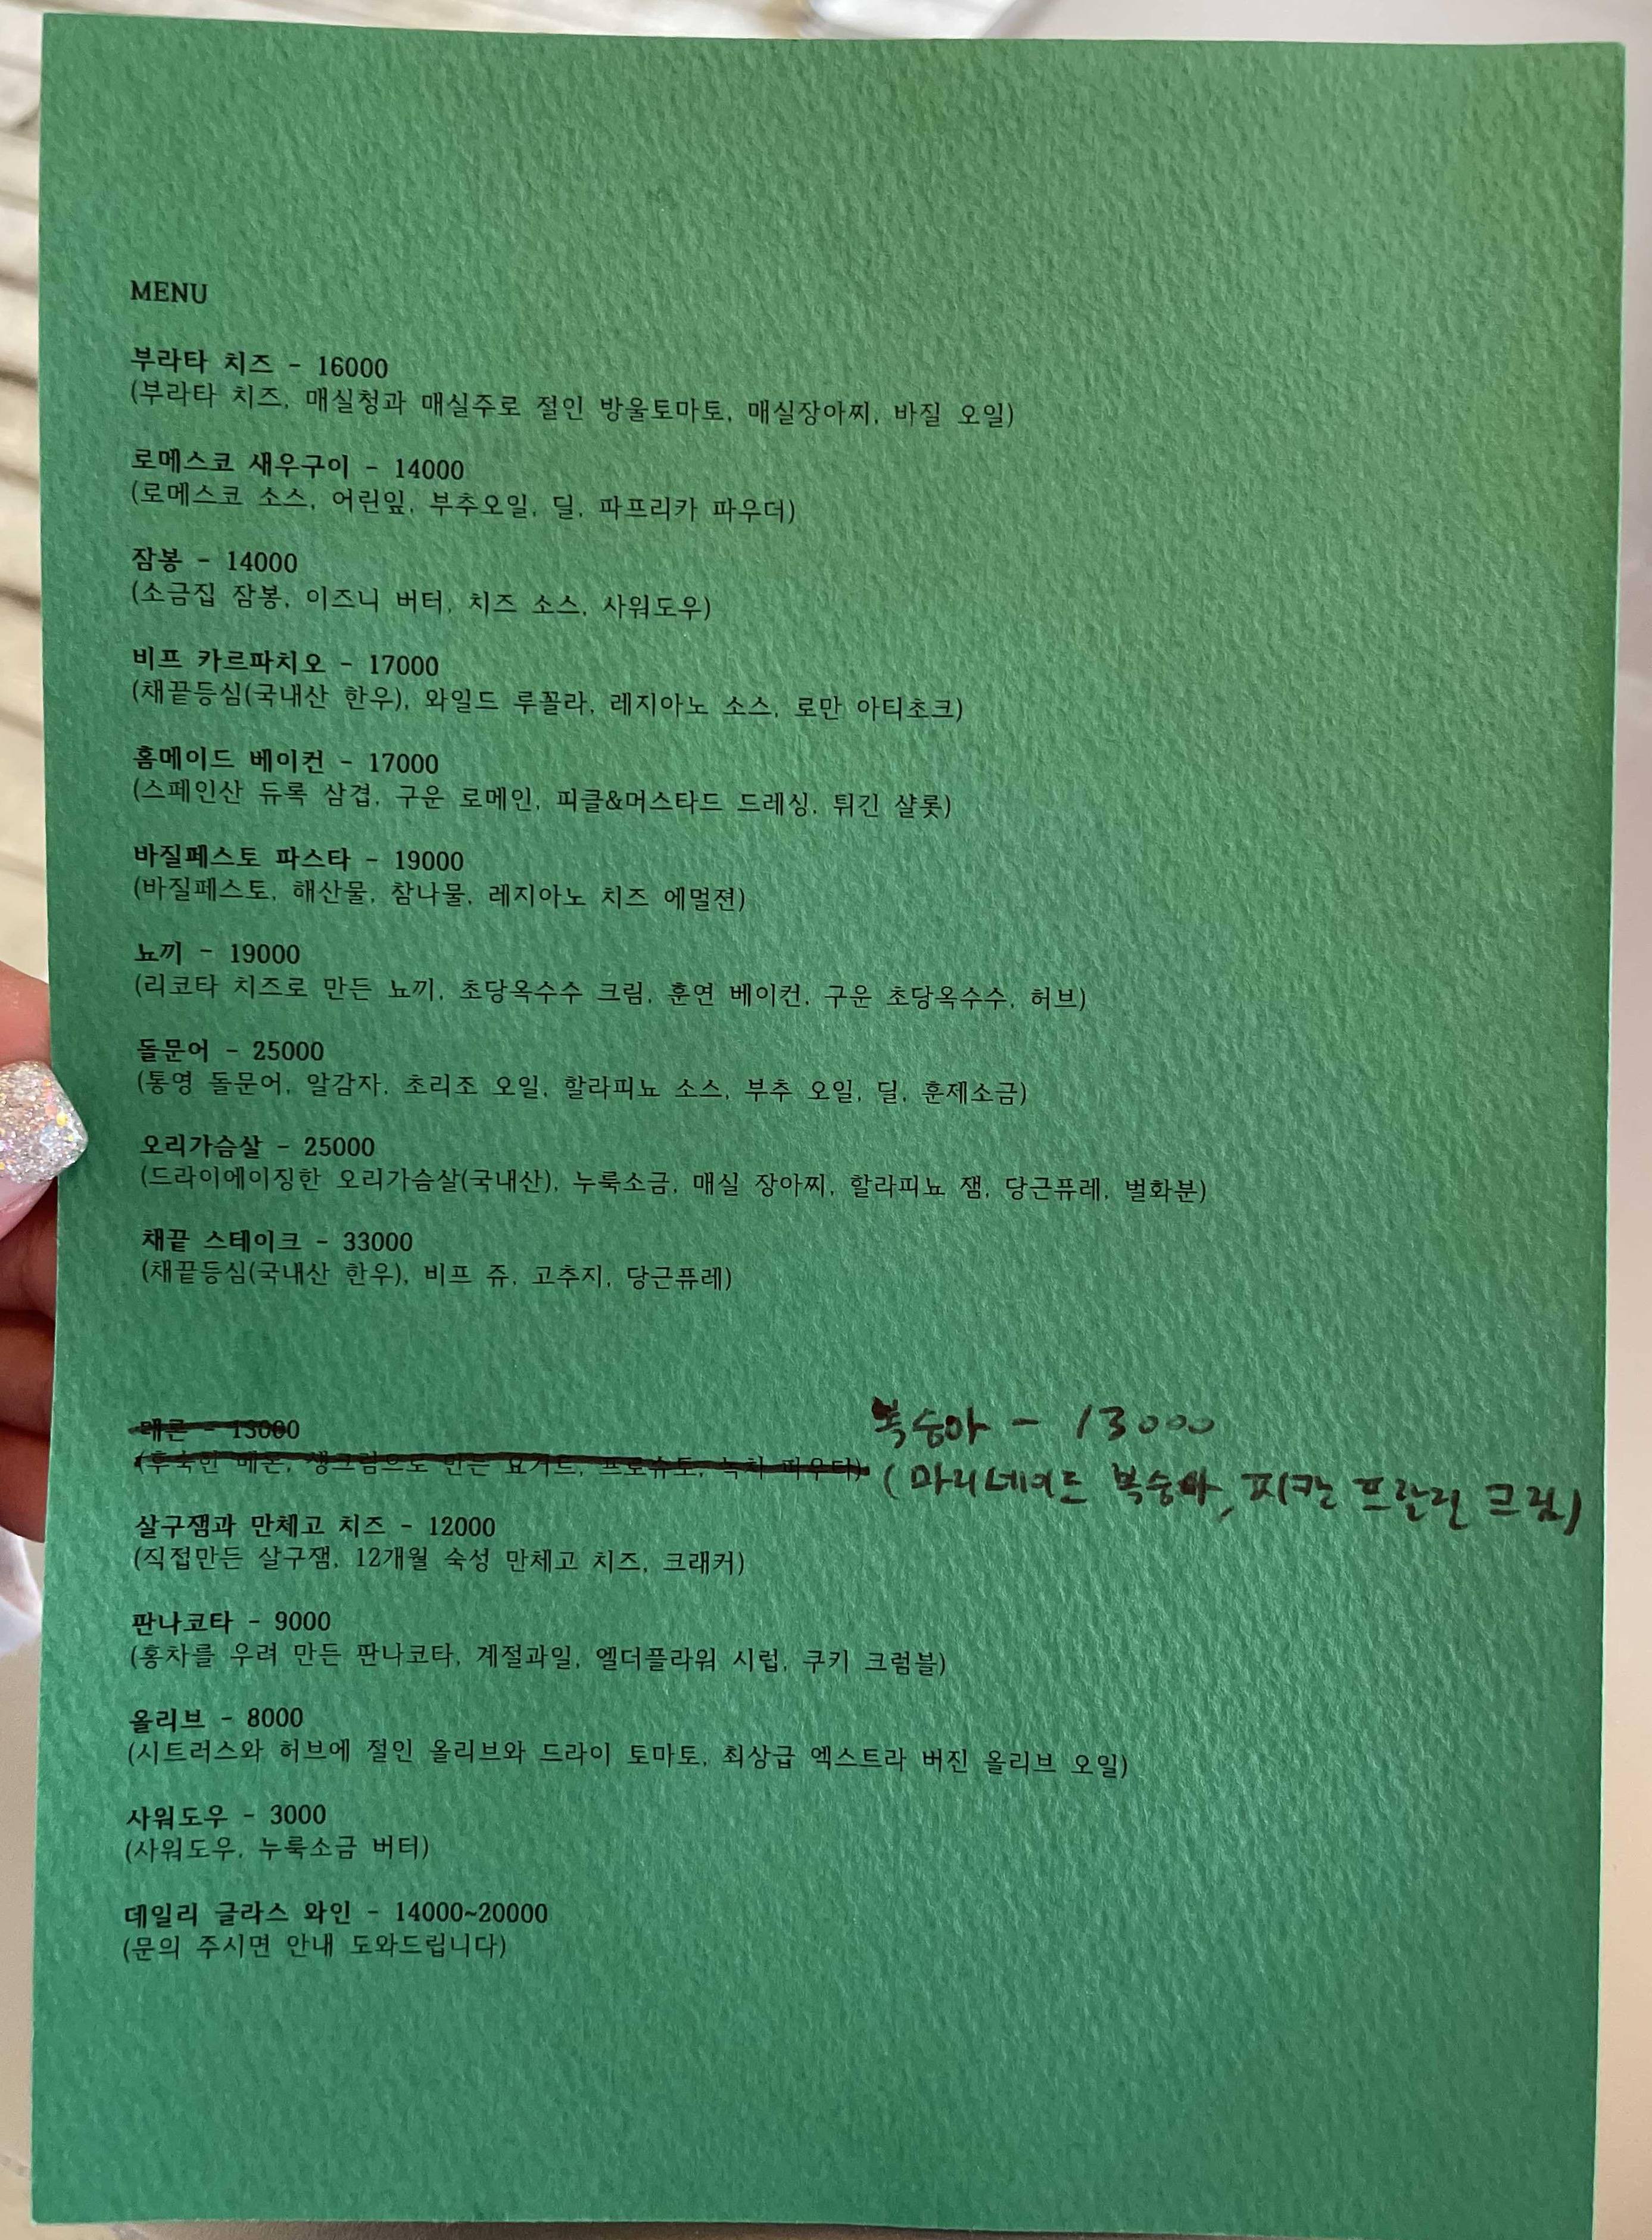 MENU
부라타 치즈 - 16000
(부라타 치즈, 매실청과 매실주로 절인 방울토마토, 매실장아찌, 바질 오일)
로메스코 새우구이 - 14000
(로메스코 소스, 어린잎, 부추오일, 딜, 파프리카 파우더)
잠봉 - 14000
(소금집 잠봉, 이즈니 버터, 치즈 소스, 사워도우)
비프 카르파치오 - 17000
(채끝등심(국내산 한우), 와일드 루꼴라, 레지아노 소스, 로만 아티초크)
홈메이드 베이컨 - 17000
(스페인산 듀록 삼겹, 구운 로메인, 피클&머스타드 드레싱, 튀긴 샬롯)
바질페스토 파스타 - 19000
(바질페스토, 해산물, 참나물, 레지아노 치즈 에멀젼)
뇨끼 - 19000
(리코타 치즈로 만든 뇨끼, 초당옥수수 크림, 훈연 베이컨, 구운 초당옥수수, 허브)
돌문어 - 25000
(통영 돌문어, 알감자, 초리조 오일, 할라피뇨 소스, 부추 오일, 딜, 훈제소금)
오리가슴살 - 25000
(드라이에이징한 오리가슴살(국내산), 누룩소금, 매실 장아찌, 할라피뇨 잼, 당근퓨레, 벌화분)
채끝 스테이크 - 33000
(채끝등심(국내산 한우), 비프 쥬, 고추지, 당근퓨레)
메론 - 13000
(후숙한 메론, 생크림으로 만든 요거트, 프로슈토, 녹차 파우더)
복숭아 - 13000
(마리네이드 복숭아, 피칸 프랄린 크림)
살구잼과 만체고 치즈 - 12000
(직접만든 살구잼, 12개월 숙성 만체고 치즈, 크래커)
판나코타 - 9000
(홍차를 우려 만든 판나코타, 계절과일, 엘더플라워 시럽, 쿠키 크럼블)
올리브 - 8000
(시트러스와 허브에 절인 올리브와 드라이 토마토, 최상급 엑스트라 버진 올리브 오일)
사워도우 - 3000
(사워도우, 누룩소금 버터)
데일리 글라스 와인 - 14000~20000
(문의 주시면 안내 도와드립니다)